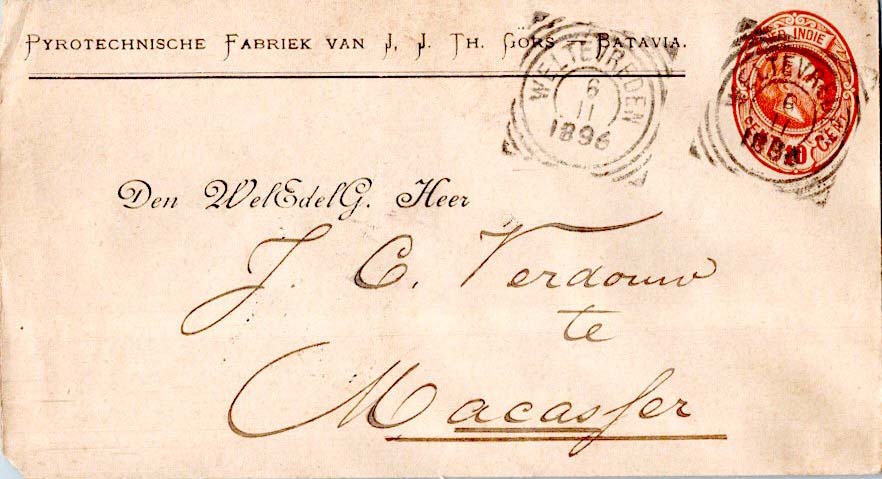 PYROTECHNISCHE FABRIEK VAN J. J. TH. GÖRS — BATAVIA.
WELTEVREDEN
6
11
1896
NED. INDIE
10 CENT
WELTEVREDEN
6
11
1896
Den WelEdelG. Heer
J. C. Verdouw
te
Macasser